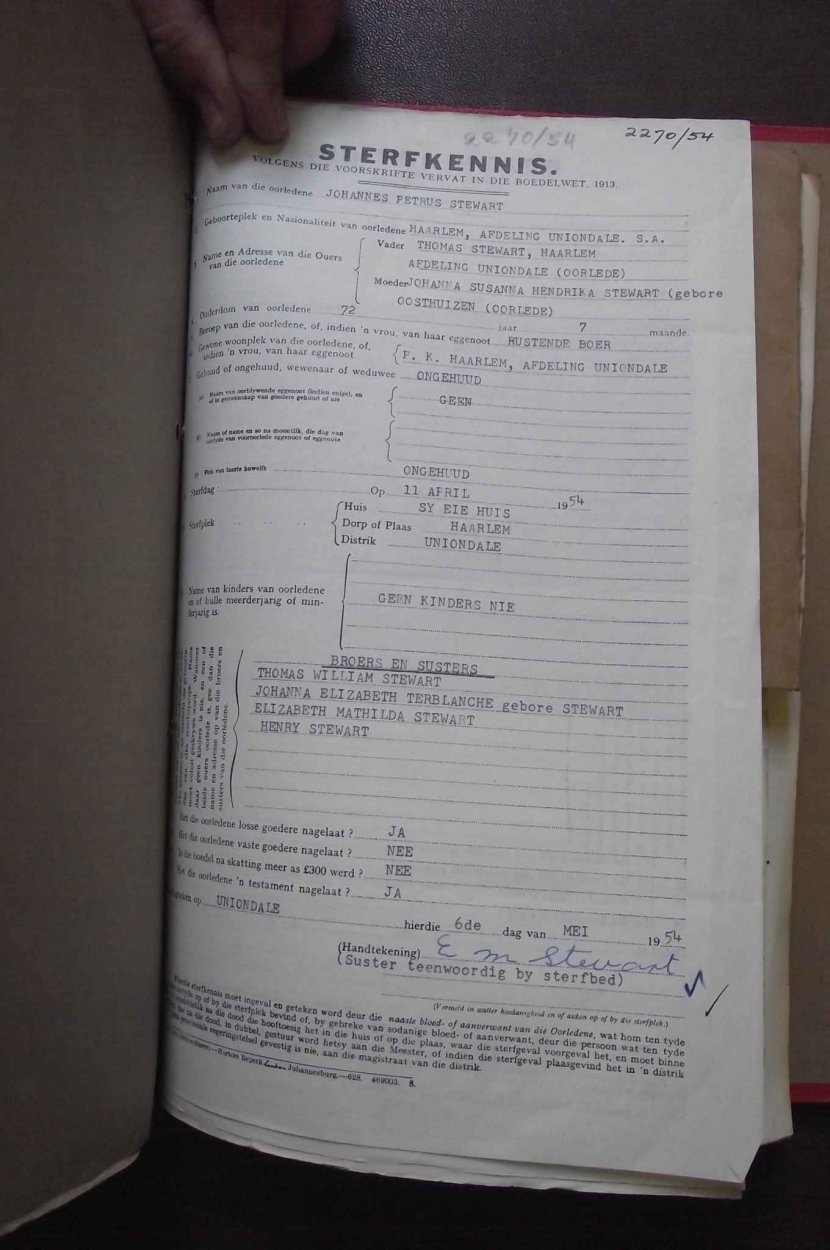 2270/54 2270/54
STERFKENNIS.
VOLGENS DIE VOORSKRIFTE VERVAT IN DIE BOEDELWET, 1913.
Naam van die oorledene JOHANNES PETRUS STEWART
Geboorteplek en Nasionaliteit van oorledene HAARLEM, AFDELING UNIONDALE. S.A.
Name en Adresse van die Ouers van die oorledene
Vader THOMAS STEWART, HAARLEM
AFDELING UNIONDALE (OORLEDE)
Moeder JOHANNA SUSANNA HENDRIKA STEWART (gebore
OOSTHUIZEN (OORLEDE)
Ouderdom van oorledene 72 jaar 7 maande
Beroep van die oorledene, of, indien 'n vrou, van haar eggenoot RUSTENDE BOER
Gewone woonplek van die oorledene, of, indien 'n vrou, van haar eggenoot P. K. HAARLEM, AFDELING UNIONDALE
Gehuud of ongehuud, wewenaar of weduwee ONGEHUUD
Naam van oorblywende eggenoot (indien enige), en
of in gemeenskap van goedere gehuud of nie GEEN
Naam of name en so na moontlik, die dag van
oorlyde van vooroorlede eggenoot of eggenote
Plek van laaste huwelik ONGEHUUD
Sterfdag Op 11 APRIL 1954
Sterfplek
Huis SY EIE HUIS
Dorp of Plaas HAARLEM
Distrik UNIONDALE
Name van kinders van oorledene
en of hulle meerderjarig of min-
derjarig is.
GEEN KINDERS NIE
BROERS EN SUSTERS
THOMAS WILLIAM STEWART
JOHANNA ELIZABETH TERBLANCHE gebore STEWART
ELIZABETH MATHILDA STEWART
HENRY STEWART
daar geen kinders is nie, en een of
beide ouers oorlede is, gee dan die
name en adresse op van die broers en
susters van die oorledene.
Het die oorledene losse goedere nagelaat ? JA
Het die oorledene vaste goedere nagelaat ? NEE
Is die boedel na skatting meer as £300 werd ? NEE
Het die oorledene 'n testament nagelaat ? JA
op UNIONDALE hierdie 6de dag van MEI 1954
(Handtekening) E M Stewart
(Suster teenwoordig by sterfbed)
(Vermeld in watter hoedanigheid en of aldan op of by die sterfplek.)
Hierdie sterfkennis moet ingevul en geteken word deur die naaste bloed- of aanverwant van die Oorledene, wat hom ten tyde
op of by die sterfplek bevind of, by gebreke van sodanige bloed- of aanverwant, deur die persoon wat ten tyde
na die dood die hooftoesig het in die huis of op die plaas, waar die sterfgeval voorgeval het, en moet binne
die dood, in dubbel, gestuur word hetsy aan die Meester, of indien die sterfgeval plaasgevind het in 'n distrik
regeringstebel gevestig is nie, aan die magistraat van die distrik.
Johannesburg.—628. 469003. 8.